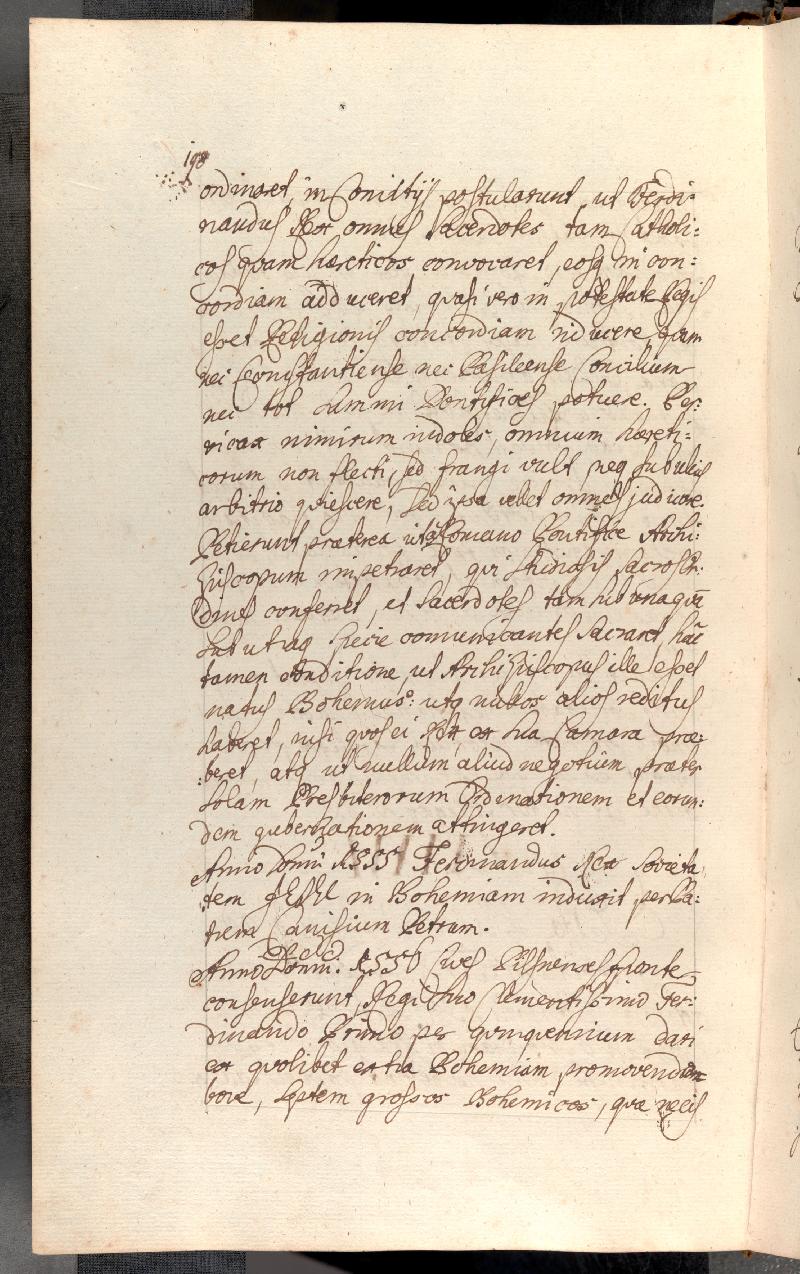 198
ordinaret, in Comitijs postularunt, ut Ferdi-
nandus Rex omnes Sacerdotes tam Catholi:
cos quam hæreticos convocaret, eosq in con:
cordiam adduceret, quasi vero in potestate Regis
esset Religionis concordiam inducere quam
nec Constantiense nec Basileense Concilium
nec tot summi Pontifices potuere. Per:
vicax nimirum indoles, omnium hæreti:
corum non flecti, sed frangi vult, neq sub ullius
arbitrio quiescere, sed ipsa vellet omnes judicare.
Petierunt præterea ut a Romano Pontifice Archi:
Episcopum impetraret, qui Studiosis Sacros Or:
dines conferret, et Sacerdotes tam sub una quã
sub utraq specie comunicantes Sacraret, hac
tamen conditione, ut Archi Episcopus ille esset
natus Bohemus: utq nullos alios reditus
haberet, nisi quos ei Rex ex sua Camara præ:
:beret, atq ut nullum aliud negotium præter
solam Presbiterorum Ordinationem et eorun:
dem gubernationem attingeret.
Anno Domi 1555 Ferdinandus Rex Societa
tem JESU in Bohemiam induxit per Pa:
trem Canisium Petrum.
Anno Domi: 1556 Cives Pilsnenses sponte
consenserunt, Regi suo Clementissimo Fer:
dinando Primo per quinquennium dari
ex quolibet extra Bohemiam promovendum
bove, septem grossos Bohemicos, quæ